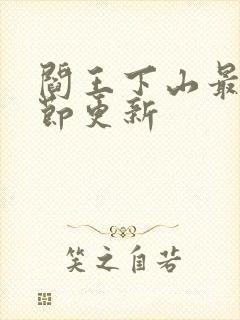 閻王下山最
節更新
笑之自若